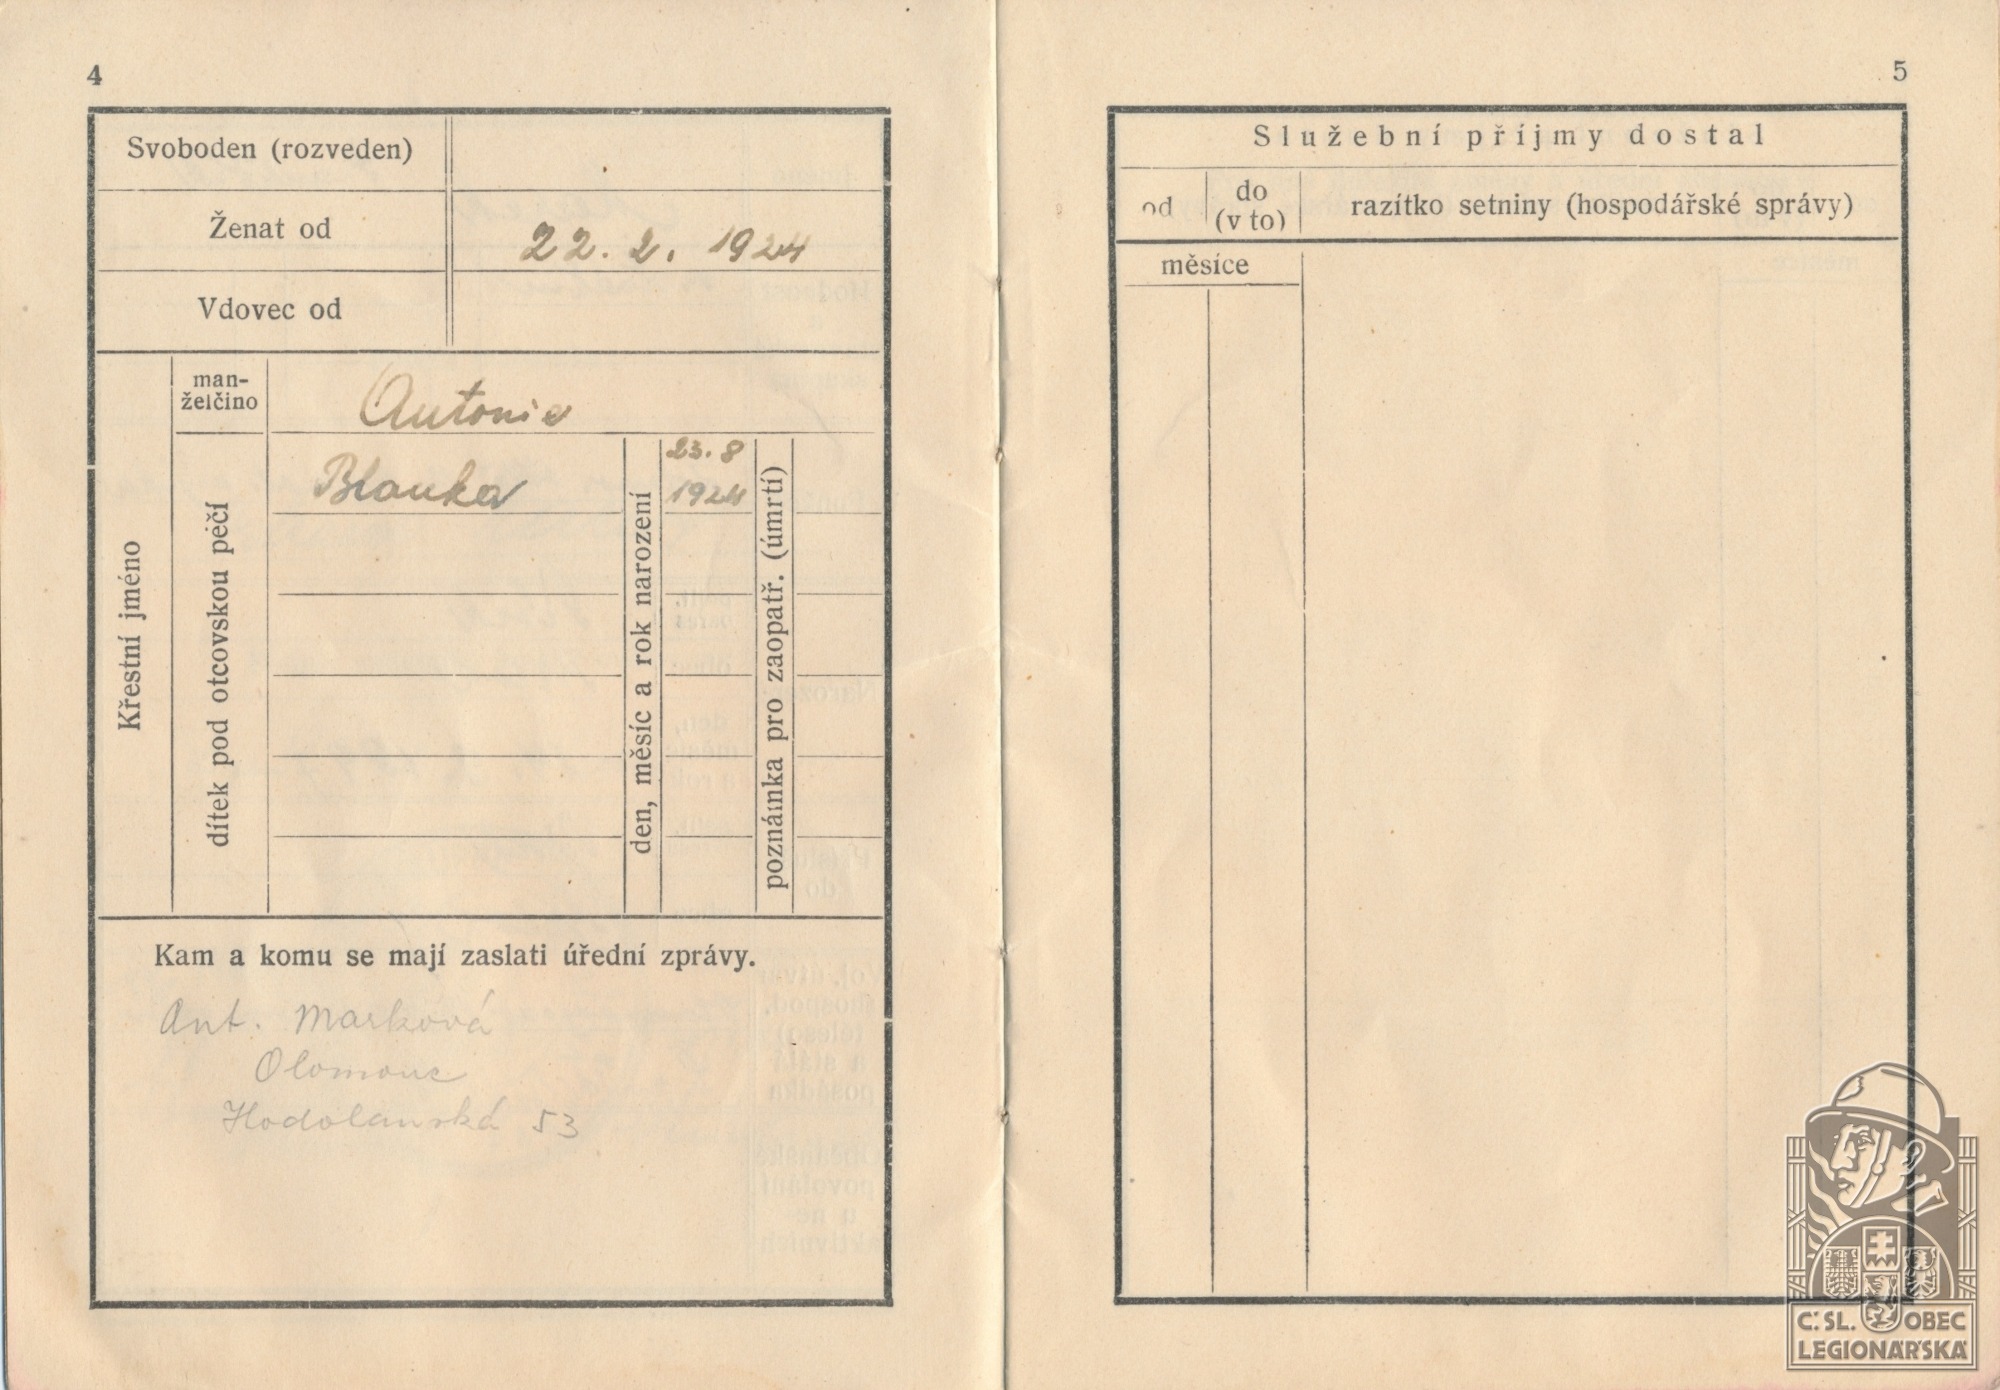 4
Svoboden (rozveden)
Ženat od
22. 2. 1924
Vdovec od
Křestní jméno
man-
želčino
Antonie
dítek pod otcovskou péčí
Blanka
den, měsíc a rok narození
23. 8
1924
poznámka pro zaopatř. (úmrtí)
Kam a komu se mají zaslati úřední zprávy.
Ant. Marková
Olomouc
Hodolanská 53
5
Služební příjmy dostal
od
do
(v to)
razítko setniny (hospodářské správy)
měsíce
Č.SL. OBEC
LEGIONÁŘSKÁ